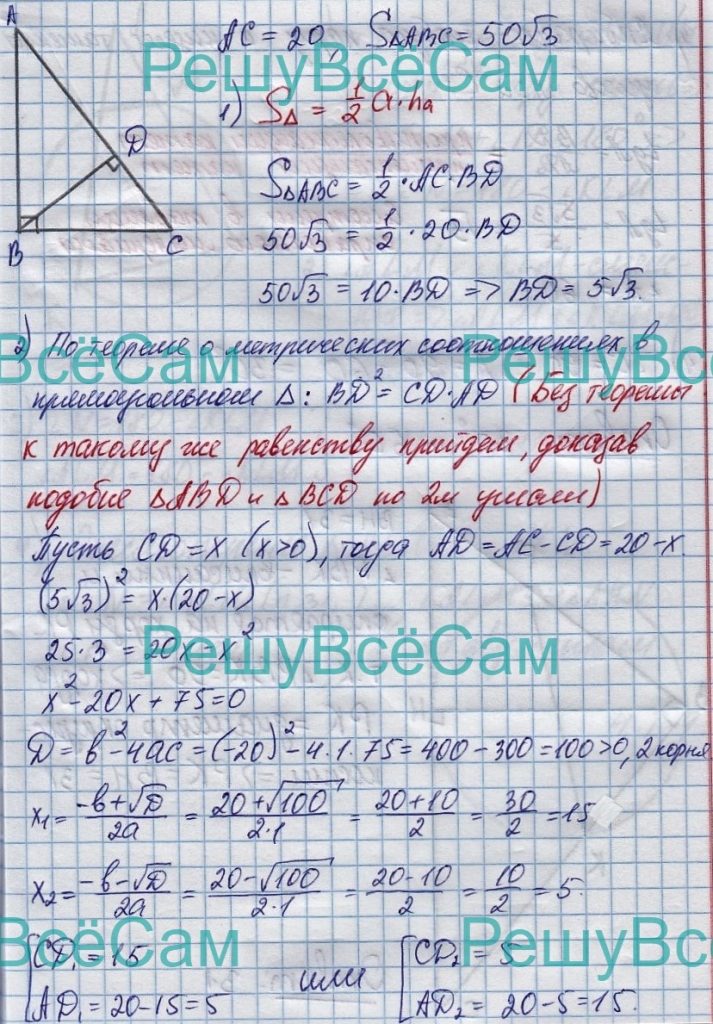 A
AC = 20, SΔABC = 50√3
РешуВсёСам
1) SΔ = 1/2 a·ha
D
SΔABC = 1/2 · AC · BD
50√3 = 1/2 · 20 · BD
B C
50√3 = 10 · BD => BD = 5√3.
2) По теореме о метрических соотношениях в
ВсёСам РешуВсё
прямоугольном Δ: BD² = CD·AD (Без теоремы
к такому же равенству придем, доказав
подобие ΔABD и ΔBCD по 2м углам)
Пусть CD = x (x>0), тогда AD = AC - CD = 20 - x
(5√3)² = x·(20-x)
25·3 = 20x - x²
РешуВсёСам
x² - 20x + 75 = 0
D = b² - 4ac = (-20)² - 4·1·75 = 400 - 300 = 100 > 0, 2 корня
x₁ = (-b+√D)/2a = (20+√100)/2·1 = (20+10)/2 = 30/2 = 15
x₂ = (-b-√D)/2a = (20-√100)/2·1 = (20-10)/2 = 10/2 = 5.
ВсёСам РешуВсё
[CD₁ = 15 или [CD₂ = 5
AD₁ = 20-15 = 5 AD₂ = 20-5 = 15.